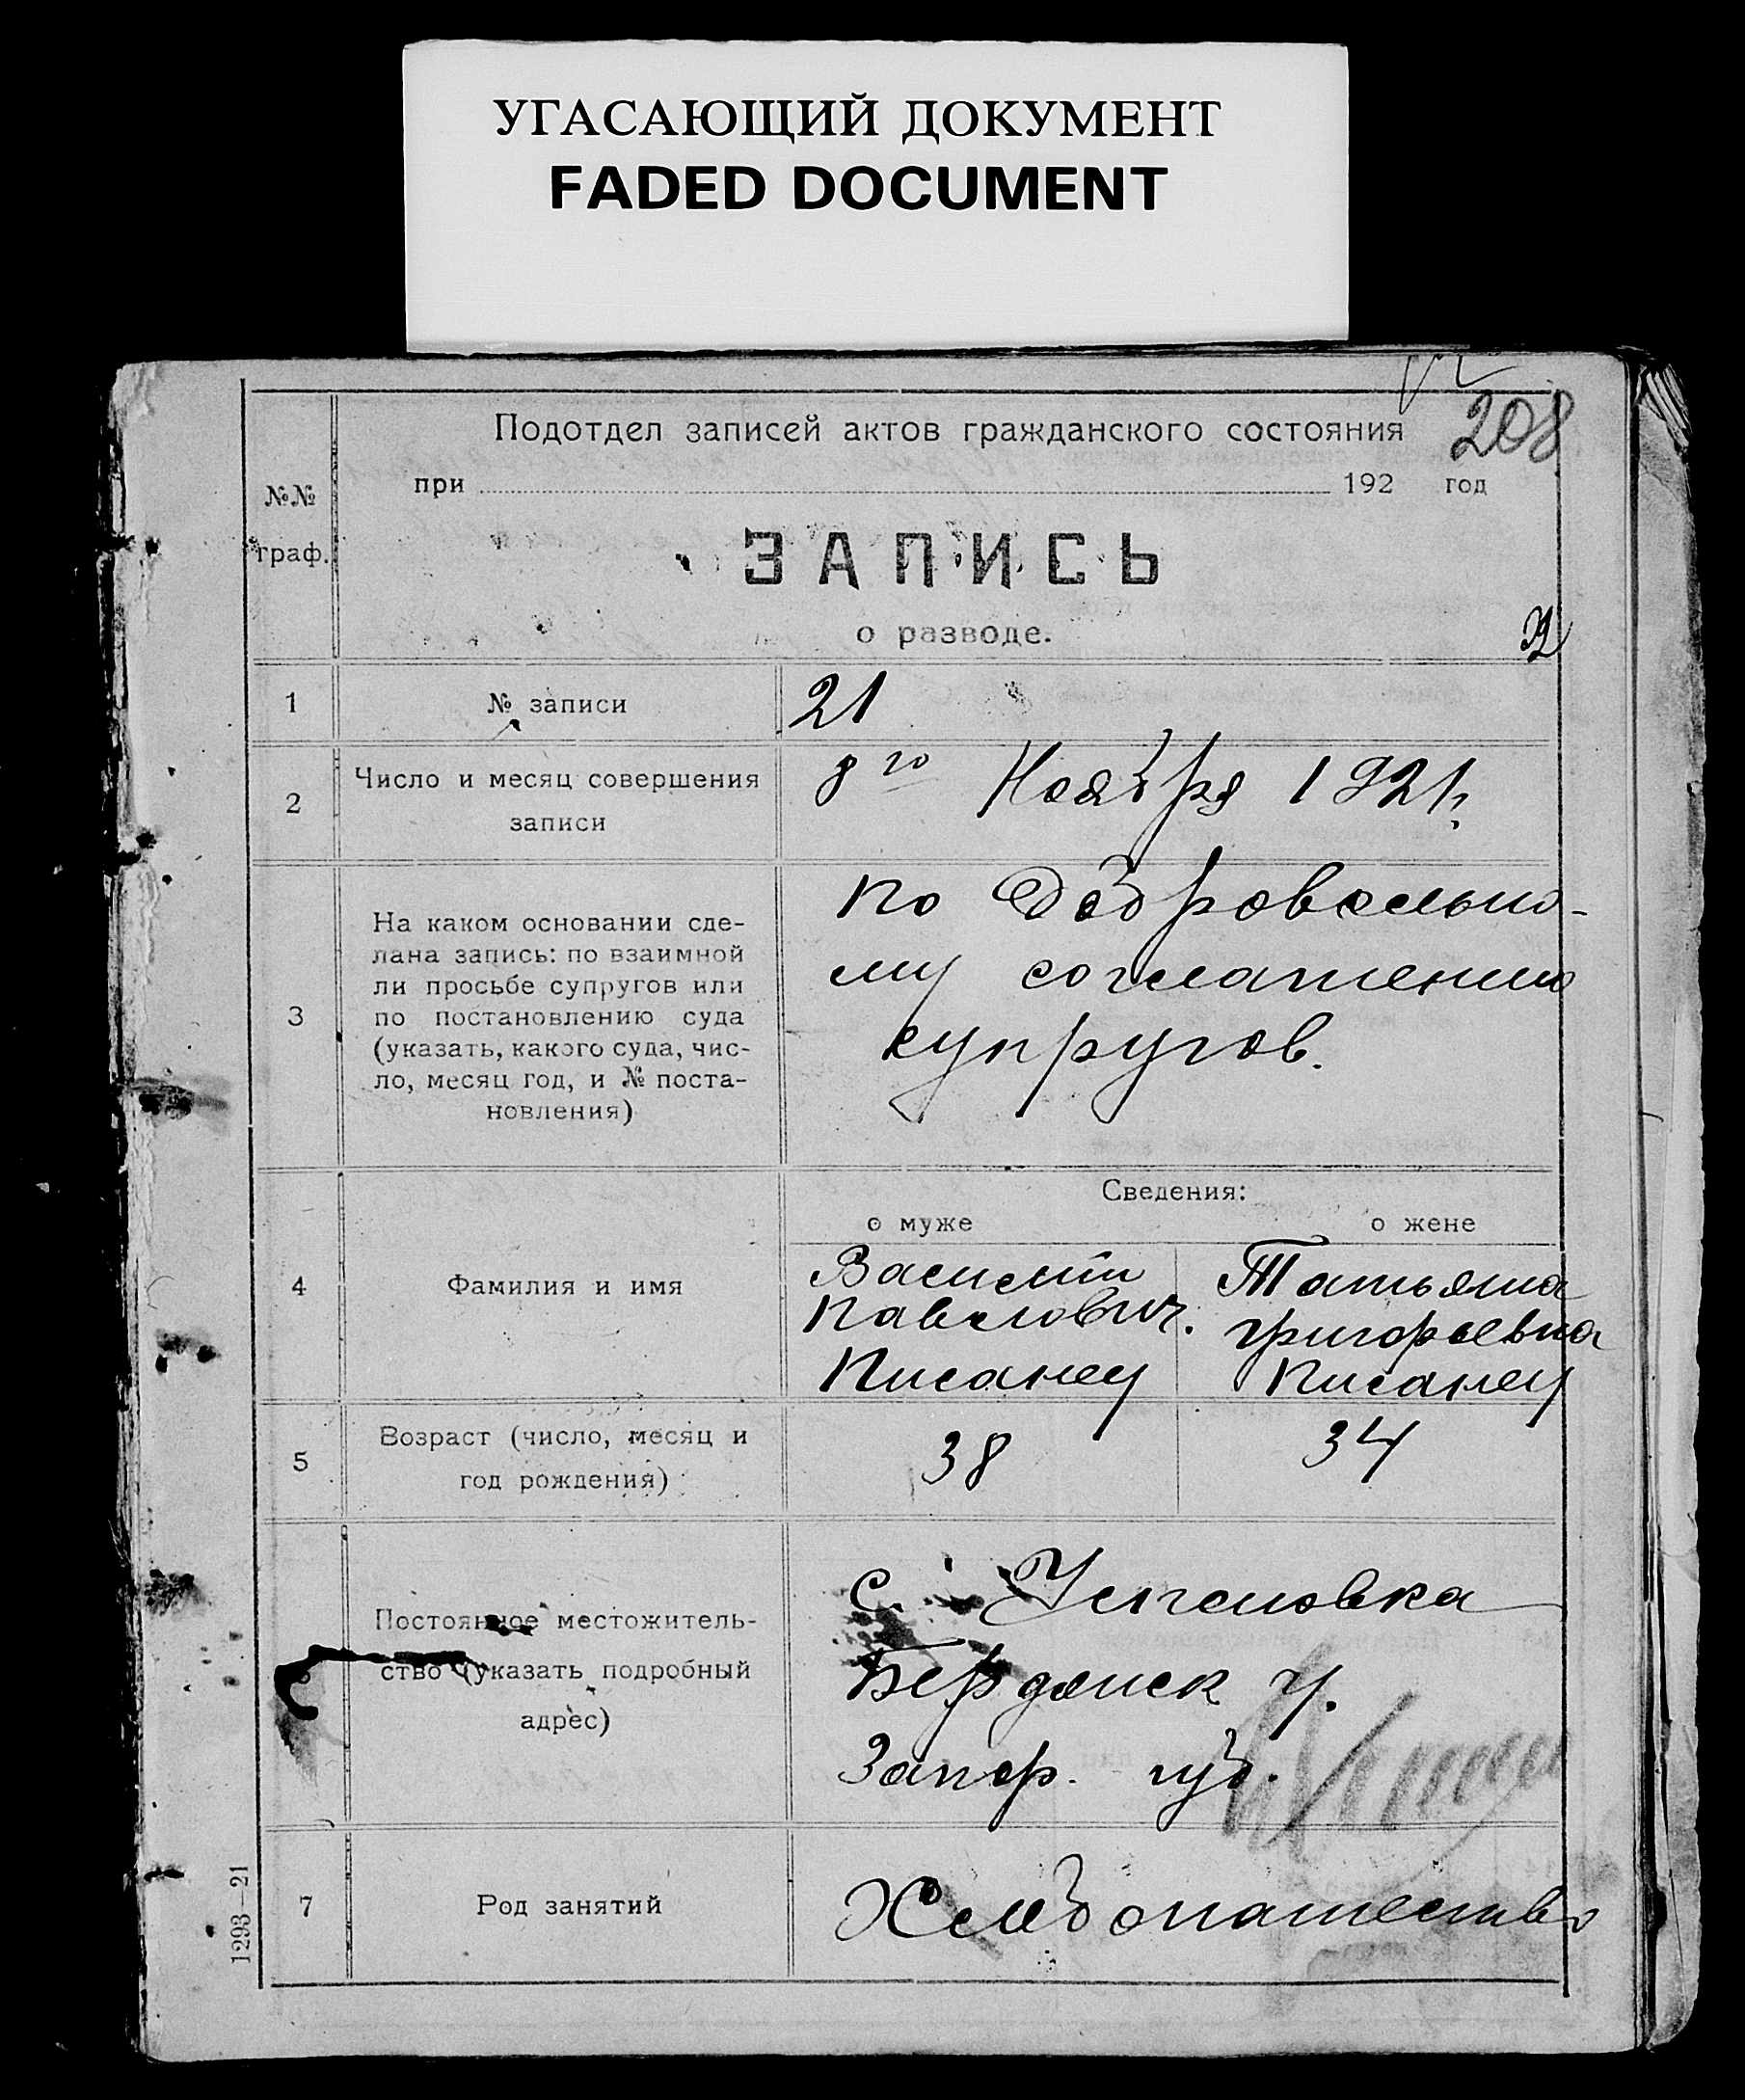 УГАСАЮЩИЙ ДОКУМЕНТ
FADED DOCUMENT
208
Подотдел записей актов гражданского состояния
при 192 год
№№
граф.
ЗАПИСЬ
о разводе.
1
№ записи
21
2
Число и месяц совершения
записи
8го Ноября 1921г.
3
На каком основании сде-
лана запись: по взаимной
ли просьбе супругов или
по постановлению суда
(указать, какого суда, чис-
ло, месяц год, и № поста-
новления)
по Добровольно-
му соглашению
супругов.
Сведения:
о муже о жене
4
Фамилия и имя
Василий
Павлович.
Писанец
Татьяна
Григорьевна
Писанец
5
Возраст (число, месяц и
год рождения)
38
34
Постоянное местожитель-
ство (указать подробный
адрес)
С. Успеновка
Бердянск у.
Запор. губ.
7
Род занятий
Хлебопашество
1293—21